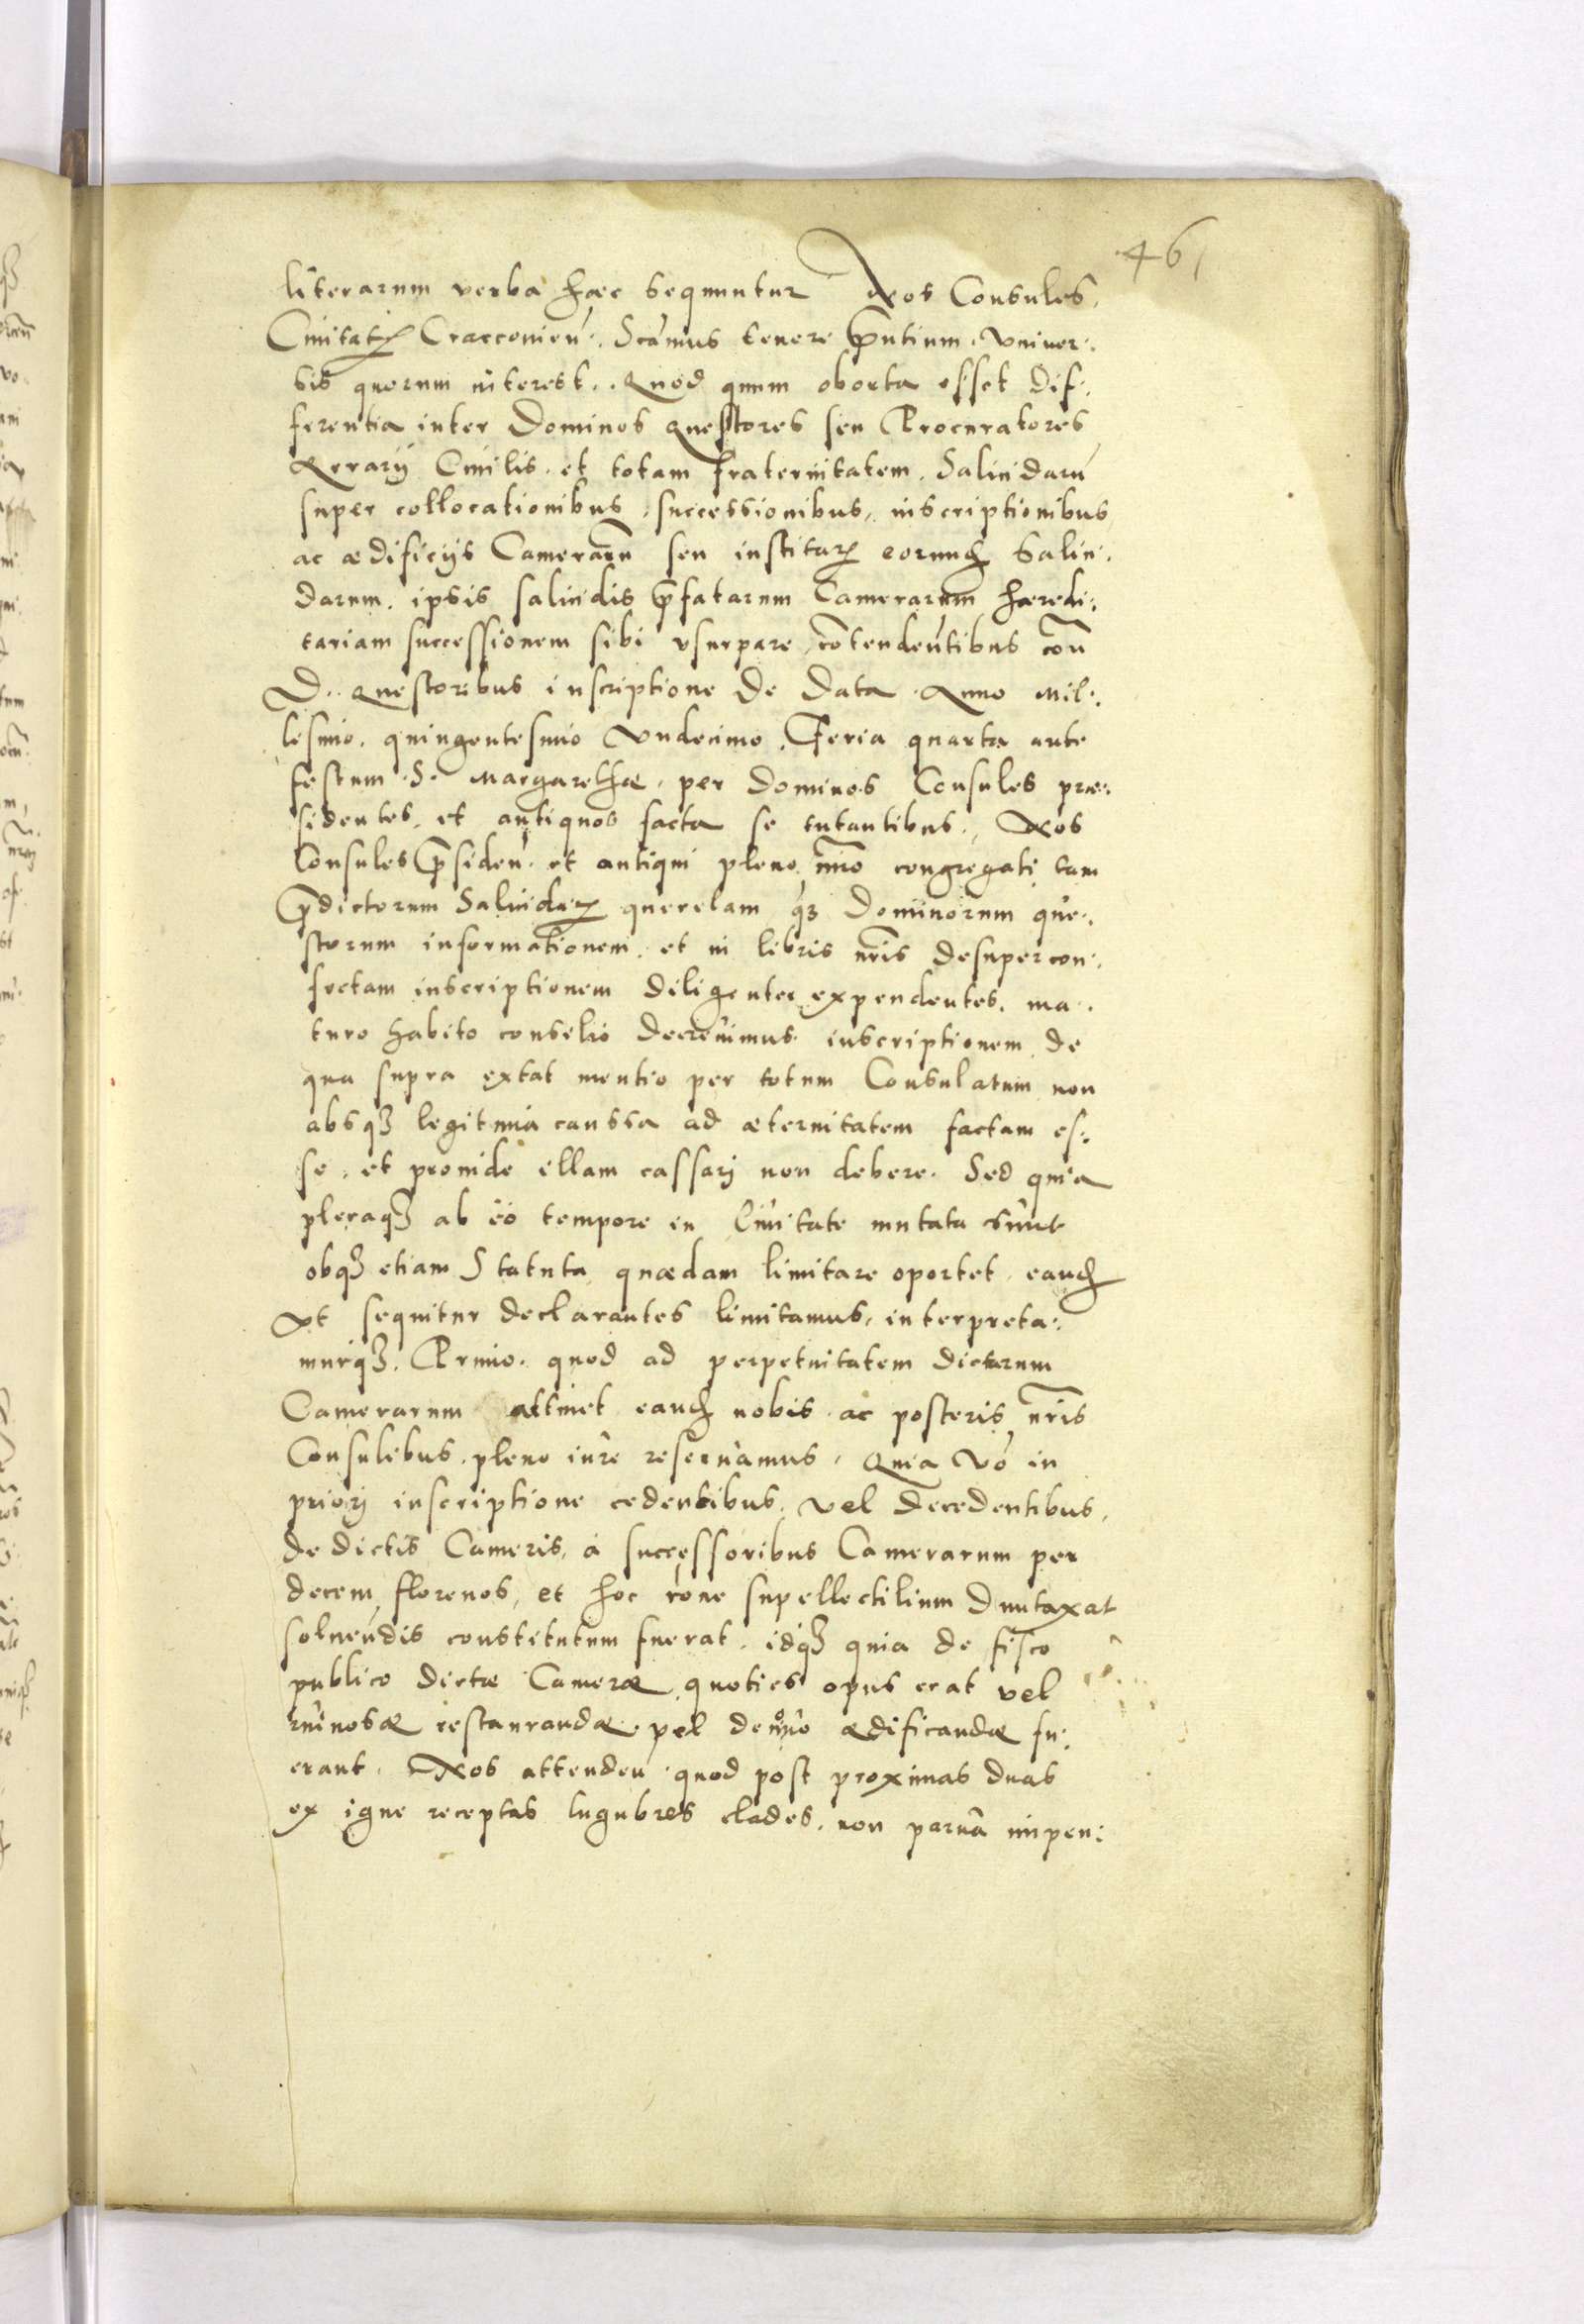 46
literarum verba haec sequuntur Nos Consules
Ciuitatꝭ Cracouieñ. Scimus tenore p̄ntium. vniuer:
sis quorum interest. Quod quum oborta esset dif:
ferentia inter Dominos questores seu Procuratores
Ærarij Ciuilis. et totam fraternitatem. Salinidarū
super collocationibus, successionibus, inscriptionibus
ac ædificijs Camerarū seu institaꝝ eorundē Salini:
darum. ipsis salinidis p̄fatarum Camerarum hæredi:
tariam successionem sibi vsurpare cōtendentibus coñ
D. questoribus inscriptione de data Anno Mil:
lesimo. quingentesimo Vndecimo. Feria quarta ante
festum S. Margarethæ, per Dominos Consules præ:
sidentes, et antiquos facta se tutantibus. Nos
Consules p̄sideñ. et antiqui pleno nūo congregati tam
p̄dictorum Salinidaꝝ querelam qꝫ Dominorum que:
storum informationem. et in libris nr̄is desuper con:
fectam inscriptionem diligenter expendentes. ma:
turo habito consilio decreuimus inscriptionem de
qua supra extat mentio per totum Consulatum non
absqꝫ legitima caussa ad æternitatem factam es:
se. et proinde illam cassarj non debere. Sed quia
pleraqꝫ ab eo tempore in Ciuitate mutata sunt
obqꝫ etiam Statuta quædam limitare oportet eandē
Vt sequitur declarantes limitamus, interpreta:
murqꝫ. Primo. quod ad perpetuitatem dictarum
Camerarum attinet eandē nobis ac posteris nr̄is
Consulibus pleno iure reseruamus. Quia vō in
priorj inscriptione cedentibus vel decedentibus,
de dictis Cameris, à successoribus Camerarum per
decem florenos, et hoc rōne supellectilium duntaxat
soluendis constitutum fuerat. idqꝫ quia de fisco
publico dictæ Cameræ quoties opus erat vel
ruinosæ restaurandæ, vel denuo ædificandæ fu:
erant. Nos attendeñ quod post proximas duas
ex igne receptas lugubres clades, non parua impen: